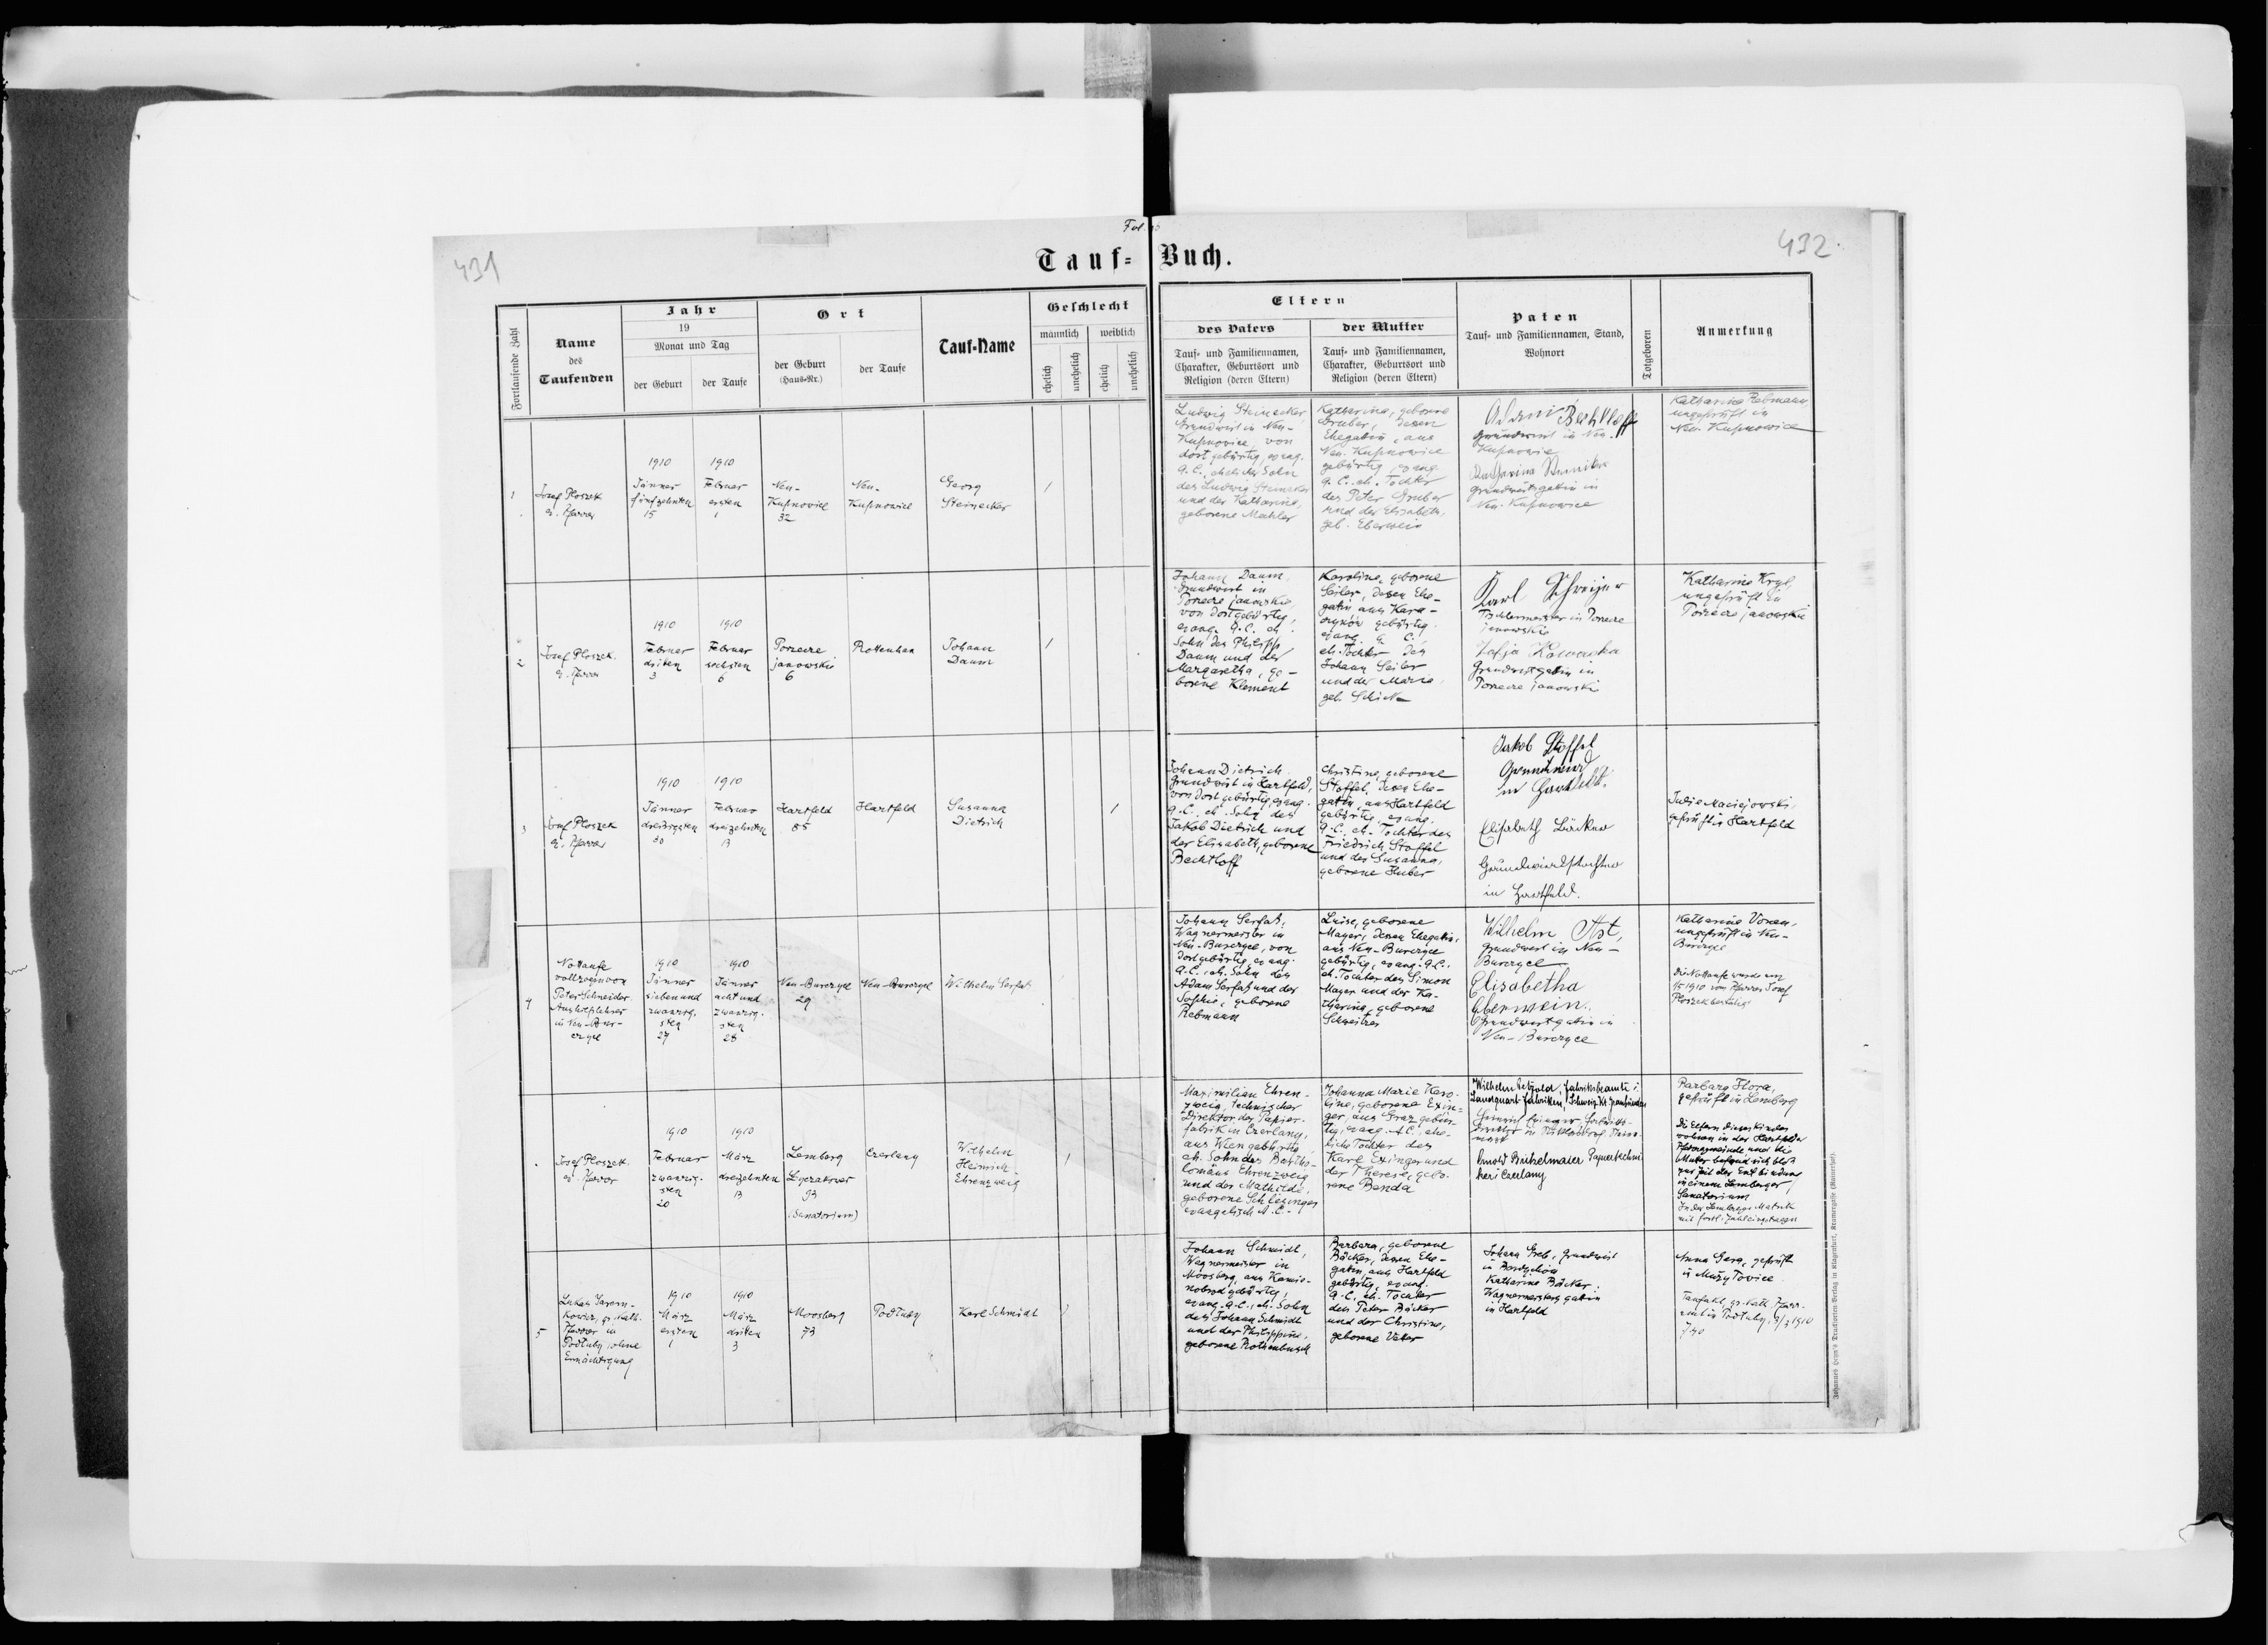 Fol.
431
432.
Tauf-Buch.
Fortlaufende Zahl
Name
des
Taufenden
Jahr
19
Monat und Tag
der Geburt
der Taufe
Ort
der Geburt
(Haus-Nr.)
der Taufe
Tauf-Name
Geschlecht
männlich
weiblich
ehelich
unehelich
ehelich
unehelich
Eltern
des Vaters
Tauf- und Familiennamen,
Charakter, Geburtsort und
Religion (deren Eltern)
der Mutter
Tauf- und Familiennamen,
Charakter, Geburtsort und
Religion (deren Eltern)
Paten
Tauf- und Familiennamen, Stand,
Wohnort
Totgeboren
Anmerkung
1
Josef Ploszek
ev. Pfarrer
1910
Jänner
fünfzehnten
15
1910
Februar
ersten
1
Neu-
Kupnovice
32
Neu-
Kupnowice
Georg
Steinecker
/
Ludwig Steinecker
Grundwirt in Neu-
Kupnovice, von
dort gebürtig, evang.
A.C., ehelicher Sohn
des Ludwig Steinecker
und der Katharina,
geborene Mahler
Katharina, geborene
Gruber, dessen
Ehegatin, aus
Neu-Kupnowice
gebürtig, evang.
A.C. eh. Tochter
des Peter Gruber
und der Elisabeth,
geb. Eberwein
Adam Bechtloff
Grundwirt in Neu-
Kupnowice
Grundwirtsgatin in
Neu-Kupnowice
Katharina Rebmann
ungeprüft in
Neu-Kupnowice
2
Josef Ploszek.
ev. Pfarrer
1910
Februar
driten
3
1910
Februar
sechsten
6
Porzecze
janowskie
6
Rottenhan
Johann
Daum
/
Johann Daum,
Grundwirt in
Porzecze janowskie,
von dort gebürtig,
evang. A.C. eh.
Sohn des Philipp
Daum und der
Margaretha, ge-
borene Klement
Karolina, geborene
Seiler, dessen Ehe-
gatin aus Kara-
gebürtig
evang. A. C.,
eh. Tochter des
Johann Seiler
und der Maria
geb. Schick
Karl Schweizer
Tischlermeister in Porzecze
janowskie
Zofja Kowalska
Grundwirtsgatin in
Porzecze janowskie
Katharina Kryl,
ungeprüft in
Porzecze janowskie
3
Josef Ploszek
ev. Pfarrer
1910
Jänner
dreißigsten
30
1910
Februar
dreizehnten
13
Hartfeld
85
Hartfeld
Susanna
Dietrich
/
Johann Dietrich
Grundwirt in Hartfeld,
von dort gebürtig, evang.
A.C., eh. Sohn des
Jakob Dietrich und
der Elisabeth, geborene
Bechtloff
Christina, geborene
Stoffel, dessen Ehe-
gatin, aus Hartfeld
gebürtig, evang.
A.C., eh. Tochter des
Friedrich Stoffel
und der Susanna,
geborene Huber
Jakob Stoffel
Grundwirt
in Hartfeld.
Elisabeth Bäcker
Grundwirtstochter
in Hartfeld.
Julie Maciejowski,
geprüft in Hartfeld
4
Nottaufe
vollzogen von
Peter Schneider
Aushilfslehrer
in Neu-Bur-
czyce
1910
Jänner
sieben und
zwanzig-
sten
27
1910
Jänner
acht und
zwanzig-
sten
28
Neu-Burczyce
29
Neu-Burczyce
Wilhelm Serfas
Johann Serfaß,
Wagnermeister in
Neu-Burczyce, von
dort gebürtig, evang.
A.C., eh. Sohn des
Adam Serfaß und der
Sophie, geborene
Rebmann
Luise, geborene
Mayer, dessen Ehegatin,
aus Neu-Burczyce
gebürtig, evang. A.C.,
eh. Tochter des Simon
Mayer und der Ka-
tharina, geborene
Schweitzer
Wilhelm Ast,
Grundwirt in Neu-
Burczyce
Elisabetha
Eberwein.
Grundwirtgatin in
Neu-Burczyce
Katharina Vonau,
ungeprüft in Neu-
Burczyce
Die Nottaufe wurde am
1910 vom Pfarrer Josef
Ploszek bestätigt
Josef Ploszek.
ev. Pfarrer
1910
Februar
zwanzig-
sten
20
1910
März
dreizehnten
13
Lemberg
Lyczakower
93
(Sanatorium)
Czerlany
Wilhelm
Heinrich
Ehrenzweig
/
Maximilian Ehren-
zweig, technischer
Direktor der Papier-
fabrik in Czerlany,
aus Wien gebürtig,
eh. Sohn des Bartho-
lomäus Ehrenzweig
und der Mathilde,
geborene Schlesinger
evangelisch A.C.-
Johanna Marie Karo-
line, geborene Exin-
ger, aus Graz gebür-
tig, evang. A.C., ehe-
liche Tochter des
Karl Exinger und
der Therese, gebo-
rene Benda
Wilhelm Petzold, Fabriksbeamte i.
Landquart-Fabriken, Schweiz, Kt. Graubünden
Arnold Bruhelmaier Papiertechni-
ker Czerlany
Barbara Flora,
geprüft in Lemberg
Die Eltern dieses Kindes
wohnen in der Hartfelder
Pfarrgemeinde und die
Mutter befand sich bloß
zur Zeit der Entbindung
in einem Lemberger
Sanatorium
In der Lemberger Matrik
mit fortl. Zahl eingetragen
5
kowicz, gr. kath.
Pfarrer in
Podluby, ohne
Ermächtigung
1910
März
ersten
1
1910
März
driten
3
Moosberg
73
Podluby
Karl Schmidt
/
Johann Schmidt,
Wagnermeister in
Moosberg, aus Kamie-
nobrod gebürtig,
evang. A.C., eh. Sohn
des Johann Schmidt
und der Philippine,
geborene Rothenbusch
Barbara, geborene
Bäcker, dessen Ehe-
gatin, aus Hartfeld
gebürtig, evang.
A.C., eh. Tochter
des Peter Bäcker
und der Christine,
geborene Veter
Johann Greb, Grundwirt
in
Katharina Bäcker,
Wagnermeistersgatin
in Hartfeld
Anna Gera, geprüft
in Mużyłowice
Taufakt gr. kath. Pfarr-
amt in Podluby, 3/3 1910
Johannes Heyn's Drucksorten-Verlag in Klagenfurt, Kramergasse